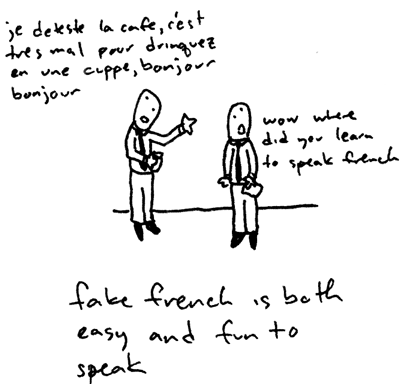 je deteste la cafe, c'est
tres mal pour drinquez
en une cuppe, bonjour
bonjour
wow where
did you learn
to speak french
fake french is both
easy and fun to
speak